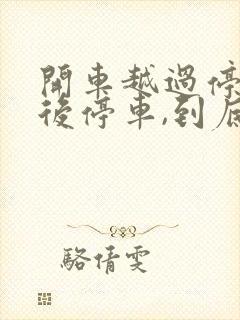 開車越過停
後停車,到底
駱倩雯